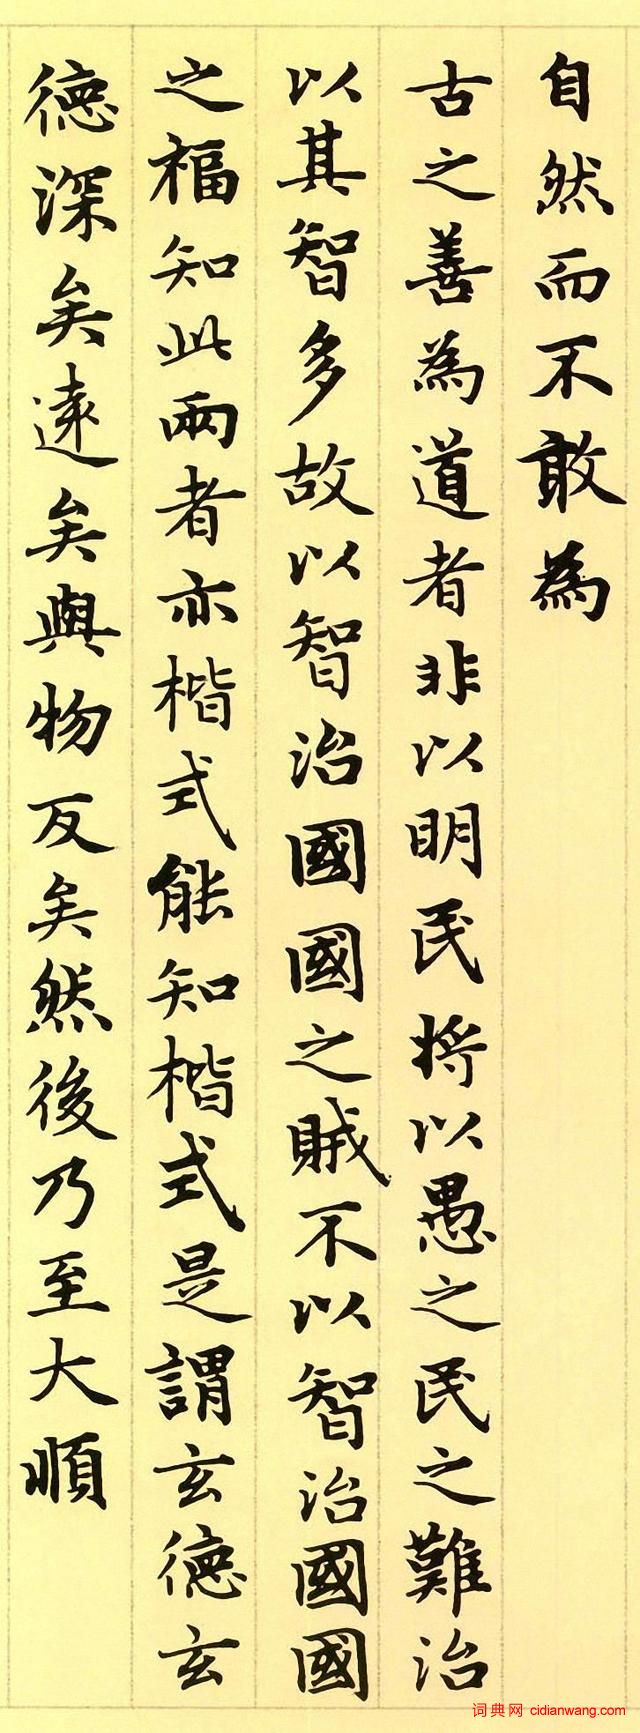 自然而不敢為
古之善為道者非以明民將以愚之民之難治
以其智多故以智治國國之賊不以智治國國
之福知此兩者亦楷式能知楷式是謂玄德玄
德深矣遠矣與物反矣然後乃至大順
词典网 cidianwang.com